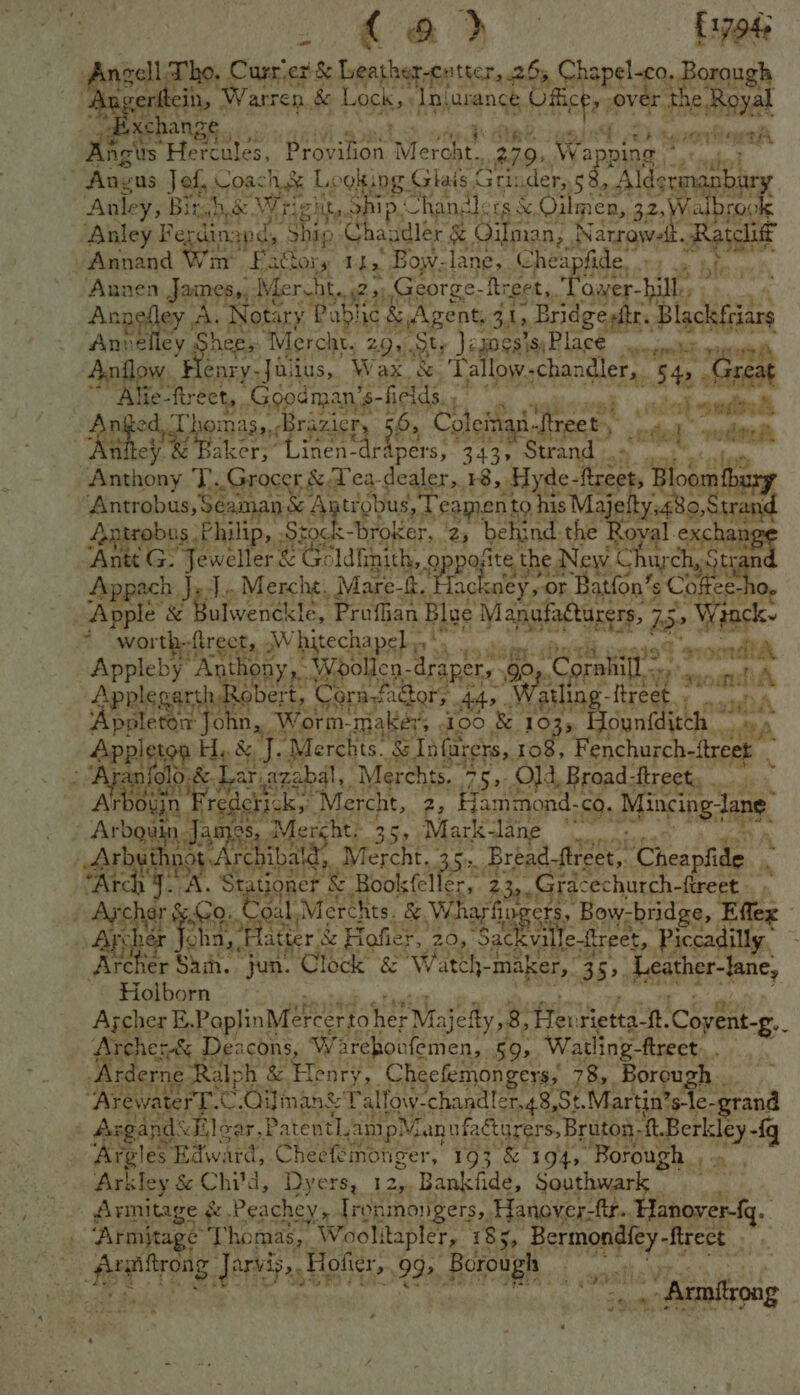 ( 9 ) [1794,
Angell Tho. Currier & Leather-cutter, 26, Chapel-co. Borough
Angerſtein, Warren & Lock, Inſurance Office, over the Royal
Exchange
Angus Hercules, Proviſion Mercht. 279, Wapping
Angus Joſ. Coach & Looking Glaſs Grinder, 58, Aldermanbury
Anley, Birch, & Wright, Ship Chandlers & Oilmen, 32, Walbrook
Anley Ferdinand, Ship Chandler & Oilman, Narrow-ſt. Ratcliff
Annand Wm Factor, 11, Bow-lane, Cheapſide,
Annen James, Mercht. 2, George-ſtreet, Tower-hill,
Anneſley A. Notary Public & Agent, 31, Bridge-ſtr. Blackfriars
Anneſley Shee, Mercht. 29, St. James's Place
Anſlow Henry-Julius, Wax & Tallow-chandler, 54, Great
Alie-ſtreet, Goodman's-fields,
Anſted, Thomas, Brazier, 56, Coleman-ſtreet,
Anſtey & Baker, Linen-drapers, 343, Strand
Anthony T. Grocer & Tea-dealer, 18, Hyde-ſtreet, Bloomſbury
Antrobus, Seaman & Antrobus, Teamen to his Majeſty, 480, Strand
Antrobus Philip, Stock-broker, 2, behind the Royal exchange
Antt G. Jeweller & Goldſmith, oppoſite the New Church, Strand
Appach J. J. Mercht. Mare-ſt. Hackney, or Batſon's Coffee-ho.
Apple & Bulwenckle, Pruſſian Blue Manufacturers, 75, Winck-
worth-ſtreet, Whitechapel
Appleby Anthony, Woollen-draper, 90, Cornhill
Applegarth Robert, Corn-factor, 44, Watling-ſtreet
Appleton John, Worm-maker, 100 & 103, Hounſditch
Appleton H. & J. Merchts. & Inſurers, 108, Fenchurch-ſtreet
Aranſolo & Larrazabal, Merchts. 75, Old Broad-ſtreet,
Arbouin Frederick, Mercht, 2, Hammond-co. Mincing-lane
Arbouin James, Mercht. 35, Mark-lane
Arbuthnot Archibald, Mercht. 35, Bread-ſtreet, Cheapſide
Arch J. A. Stationer & Bookſeller, 23, Gracechurch-ſtreet
Archer & Co. Coal Merchts. & Wharfingers, Bow-bridge, Eſſex
Archer John, Hatter & Hoſier, 20, Sackville-ſtreet, Piccadilly
Archer Sam. jun. Clock & Watch-maker, 35, Leather-lane,
Holborn
Archer E. Poplin Mercer to her Majeſty, 8, Henrietta-ſt. Covent-g.
Archer & Deacons, Warehouſemen, 59, Watling-ſtreet
Arderne Ralph & Henry, Cheeſemongers, 78, Borough
Arewater T. C. Oilman & Tallow-chandler, 48, St. Martin's-le-grand
Argand & Elgar, Patent Lamp Manufacturers, Bruton-ſt. Berkley-ſq
Argles Edward, Cheeſemonger, 193 & 194, Borough
Arkley & Child, Dyers, 12, Bankſide, Southwark
Armitage & Peachey, Ironmongers, Hanover-ſtr. Hanover-ſq.
Armitage Thomas, Woolſtapler, 185, Bermondſey-ſtreet
Armſtrong Jarvis, Hoſier, 99, Borough
Armſtrong